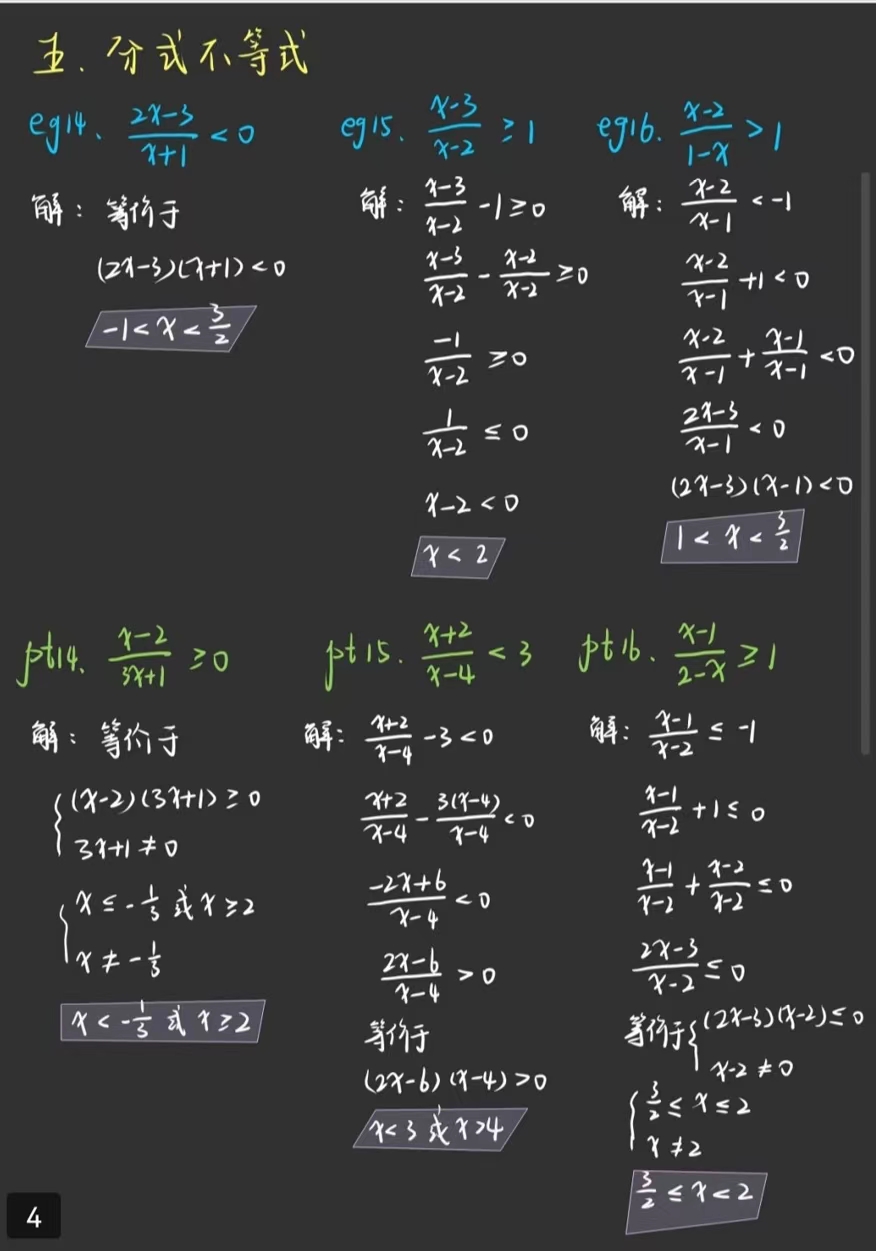 五. 分式不等式
eg14. \frac{2x-3}{x+1} < 0
解: 等价于
(2x-3)(x+1) < 0
-1 < x < \frac{3}{2}
eg15. \frac{x-3}{x-2} ≥ 1
解: \frac{x-3}{x-2} - 1 ≥ 0
\frac{x-3}{x-2} - \frac{x-2}{x-2} ≥ 0
\frac{-1}{x-2} ≥ 0
\frac{1}{x-2} ≤ 0
x-2 < 0
x < 2
eg16. \frac{x-2}{1-x} > 1
解: \frac{x-2}{x-1} < -1
\frac{x-2}{x-1} + 1 < 0
\frac{x-2}{x-1} + \frac{x-1}{x-1} < 0
\frac{2x-3}{x-1} < 0
(2x-3)(x-1) < 0
1 < x < \frac{3}{2}
pt14. \frac{x-2}{3x+1} ≥ 0
解: 等价于
{ (x-2)(3x+1) ≥ 0
3x+1 ≠ 0
{ x ≤ -\frac{1}{3} 或 x ≥ 2
x ≠ -\frac{1}{3}
x < -\frac{1}{3} 或 x ≥ 2
pt15. \frac{x+2}{x-4} < 3
解: \frac{x+2}{x-4} - 3 < 0
\frac{x+2}{x-4} - \frac{3(x-4)}{x-4} < 0
\frac{-2x+6}{x-4} < 0
\frac{2x-6}{x-4} > 0
等价于
(2x-6)(x-4) > 0
x < 3 或 x > 4
pt16. \frac{x-1}{2-x} ≥ 1
解: \frac{x-1}{x-2} ≤ -1
\frac{x-1}{x-2} + 1 ≤ 0
\frac{x-1}{x-2} + \frac{x-2}{x-2} ≤ 0
\frac{2x-3}{x-2} ≤ 0
等价于 { (2x-3)(x-2) ≤ 0
x-2 ≠ 0
{ \frac{3}{2} ≤ x ≤ 2
x ≠ 2
\frac{3}{2} ≤ x < 2
4